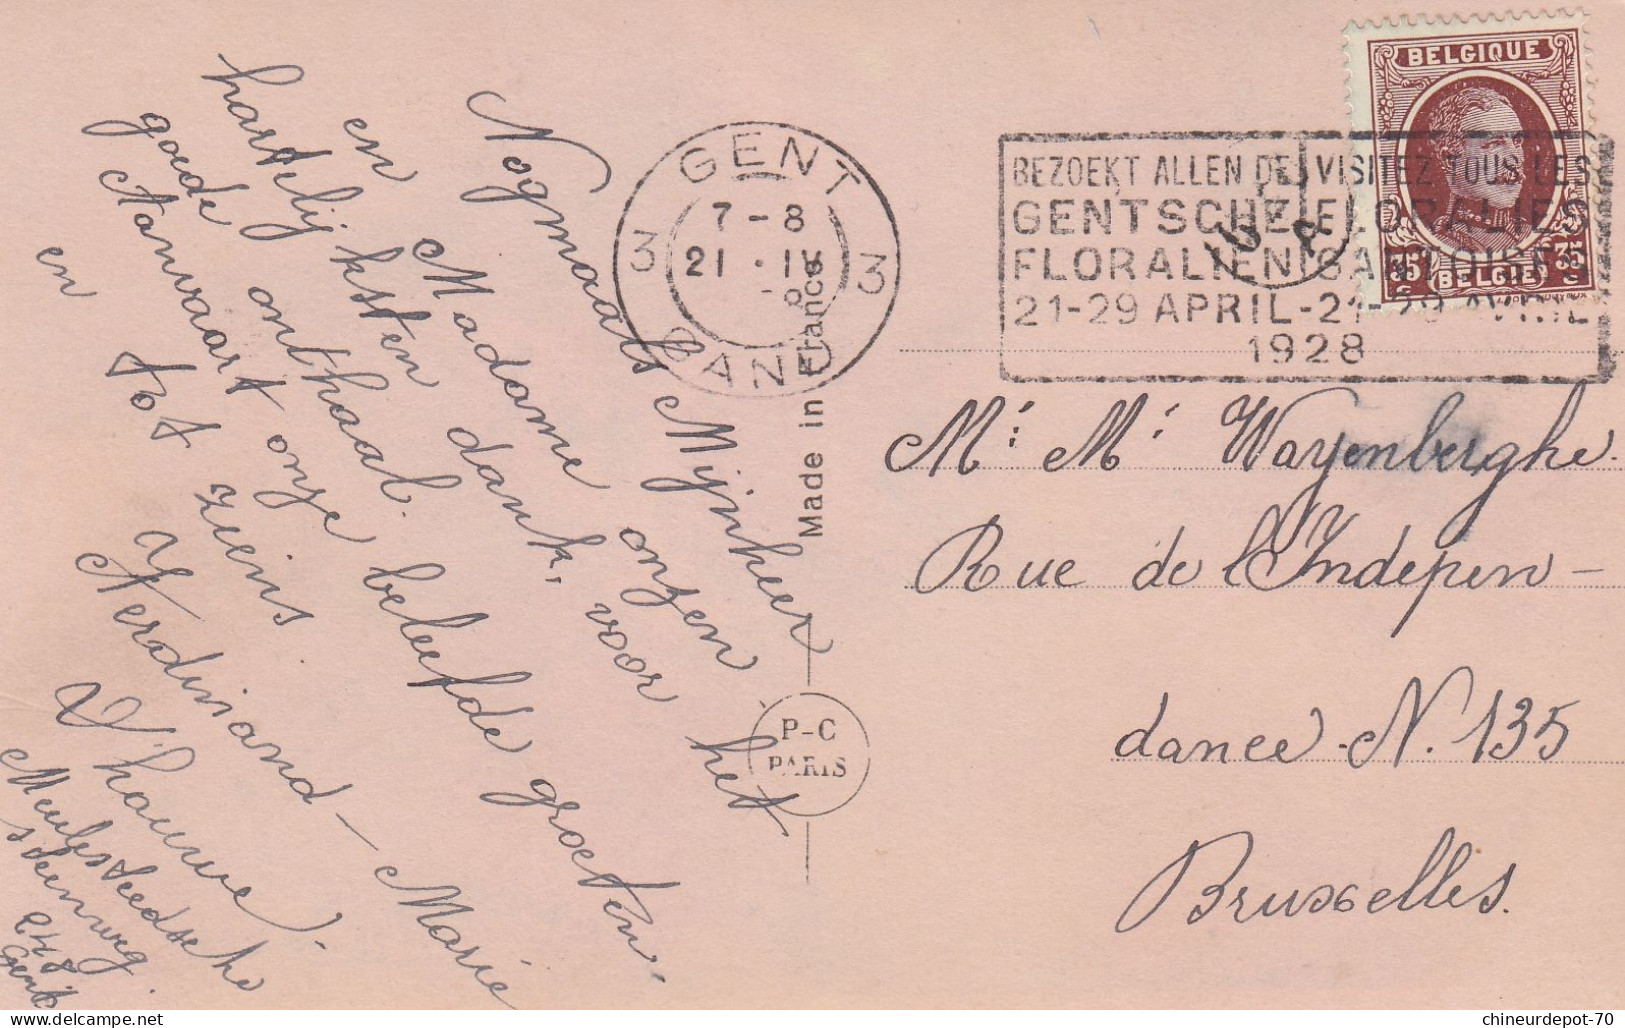 Nogmaals Mijnheer
en Madame onzen
hartelijksten dank, voor het
goede onthaal.
Aanvaart onze beleefde groeten.
en tot ziens.
Ferdinand – Marie
D'hauwe.
Meulesteedsche
steenweg
Gent
GENT
7-8
21 · IV
3 3
GAND
BEZOEKT ALLEN DE VISITEZ TOUS LES
GENTSCHE FLORALIES
FLORALIEN GANTOISES
21-29 APRIL - 21-29 AVRIL
1928
BELGIQUE
35 c 35 c
BELGIE
Made in France
P-C
PARIS
Mr. Mr. Wayenberghe.
Rue de l'Indepen-
dance N. 135
Bruxelles.
chineurdepot-70